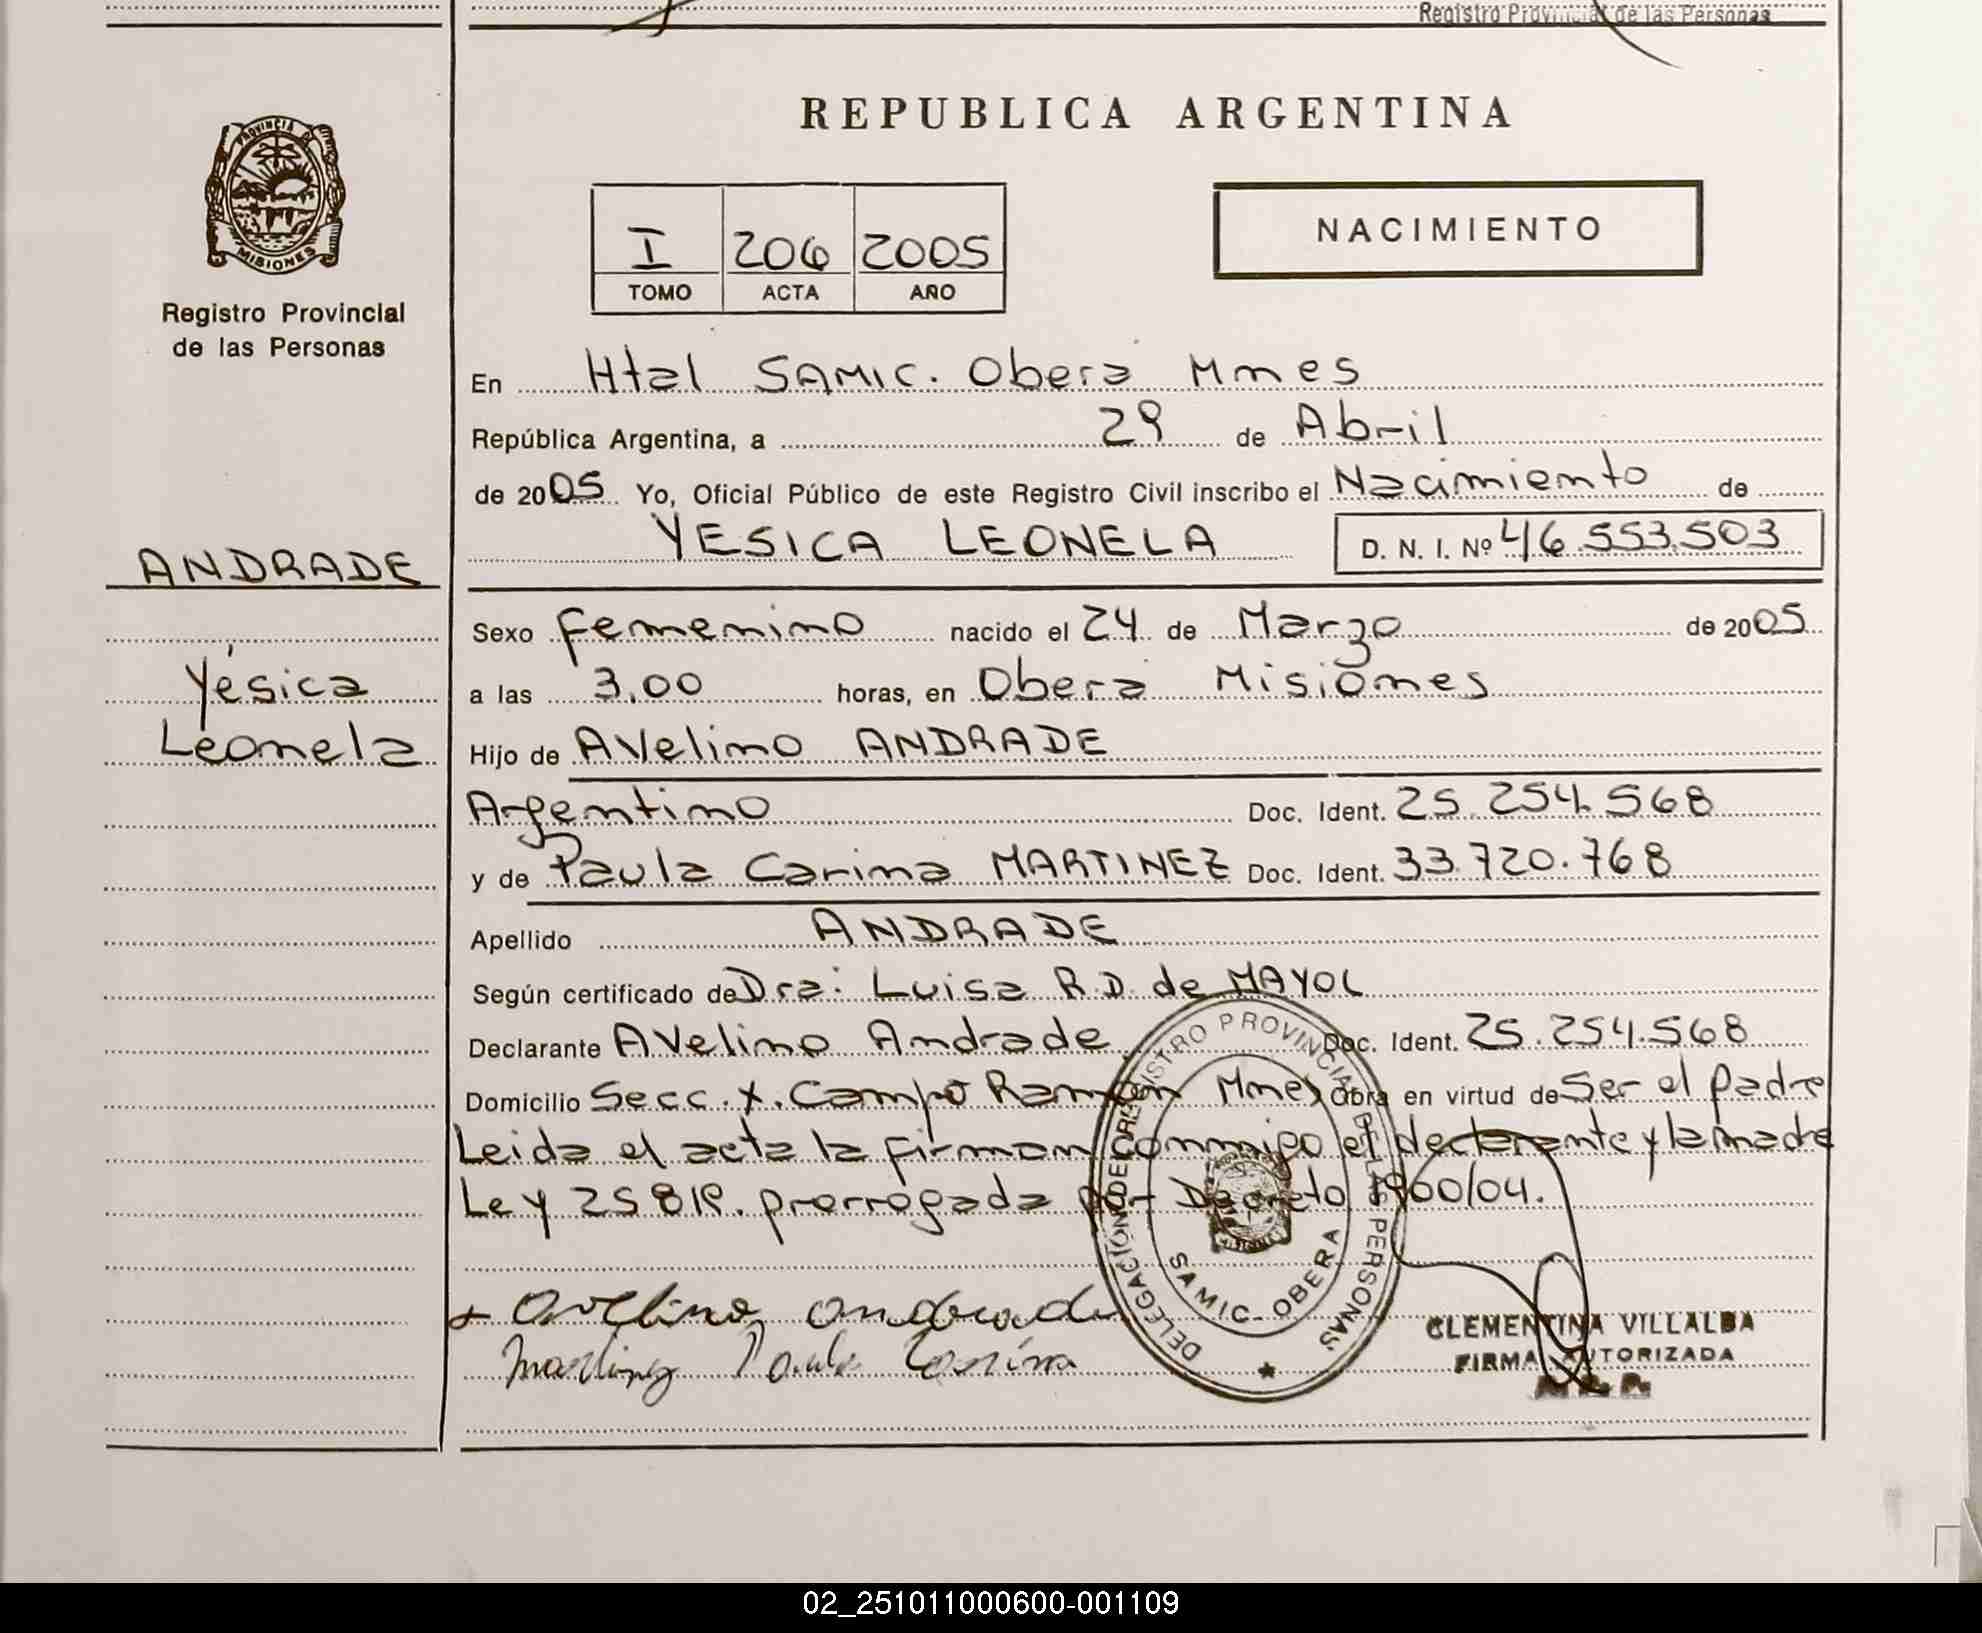 Registro Provincial de las Personas
REPUBLICA ARGENTINA
PROVINCIA DE
MISIONES
Registro Provincial
de las Personas
I 206 2005
TOMO ACTA AÑO
NACIMIENTO
En Htal SAMIC. Oberá Mnes
República Argentina, a 29 de Abril
de 2005 Yo, Oficial Público de este Registro Civil inscribo el Nacimiento de
YESICA LEONELA D. N. I. Nº 46.553.503
ANDRADE
Yésica
Leonela
Sexo femenino nacido el 24 de Marzo de 2005
a las 3,00 horas, en Oberá Misiones
Hijo de Avelino ANDRADE
Argentino Doc. Ident. 25.254.568
y de Paula Carina MARTINEZ Doc. Ident. 33.720.768
Apellido ANDRADE
Según certificado de Dra: Luisa R.D. de MAYOL
Declarante Avelino Andrade Doc. Ident. 25.254.568
Domicilio Secc. X. Campo Ramón Mnes Obra en virtud de Ser el padre
Leida el acta la firman conmigo el declarante y la madre
Ley 25819. prorrogada por Decreto 1900/04.
DELEGACION DEL REGISTRO PROVINCIAL DE LAS PERSONAS
SAMIC - OBERA
Avelino andrade
Martinez Paula Carina
CLEMENTINA VILLALBA
FIRMA AUTORIZADA
02_251011000600-001109